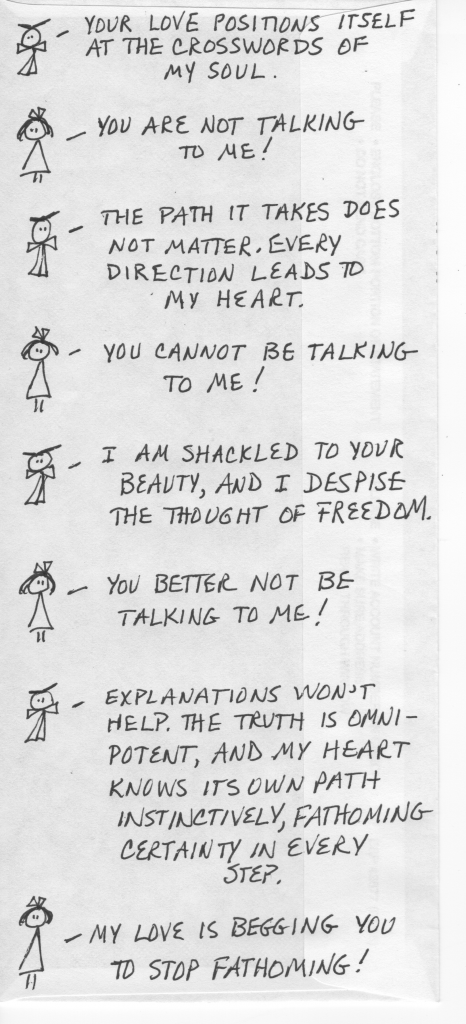 YOUR LOVE POSITIONS ITSELF
AT THE CROSSWORDS OF
MY SOUL.
YOU ARE NOT TALKING
TO ME!
THE PATH IT TAKES DOES
NOT MATTER. EVERY
DIRECTION LEADS TO
MY HEART.
YOU CANNOT BE TALKING
TO ME!
I AM SHACKLED TO YOUR
BEAUTY, AND I DESPISE
THE THOUGHT OF FREEDOM.
YOU BETTER NOT BE
TALKING TO ME!
EXPLANATIONS WON'T
HELP. THE TRUTH IS OMNI-
POTENT, AND MY HEART
KNOWS ITS OWN PATH
INSTINCTIVELY, FATHOMING
CERTAINTY IN EVERY
STEP.
MY LOVE IS BEGGING YOU
TO STOP FATHOMING!